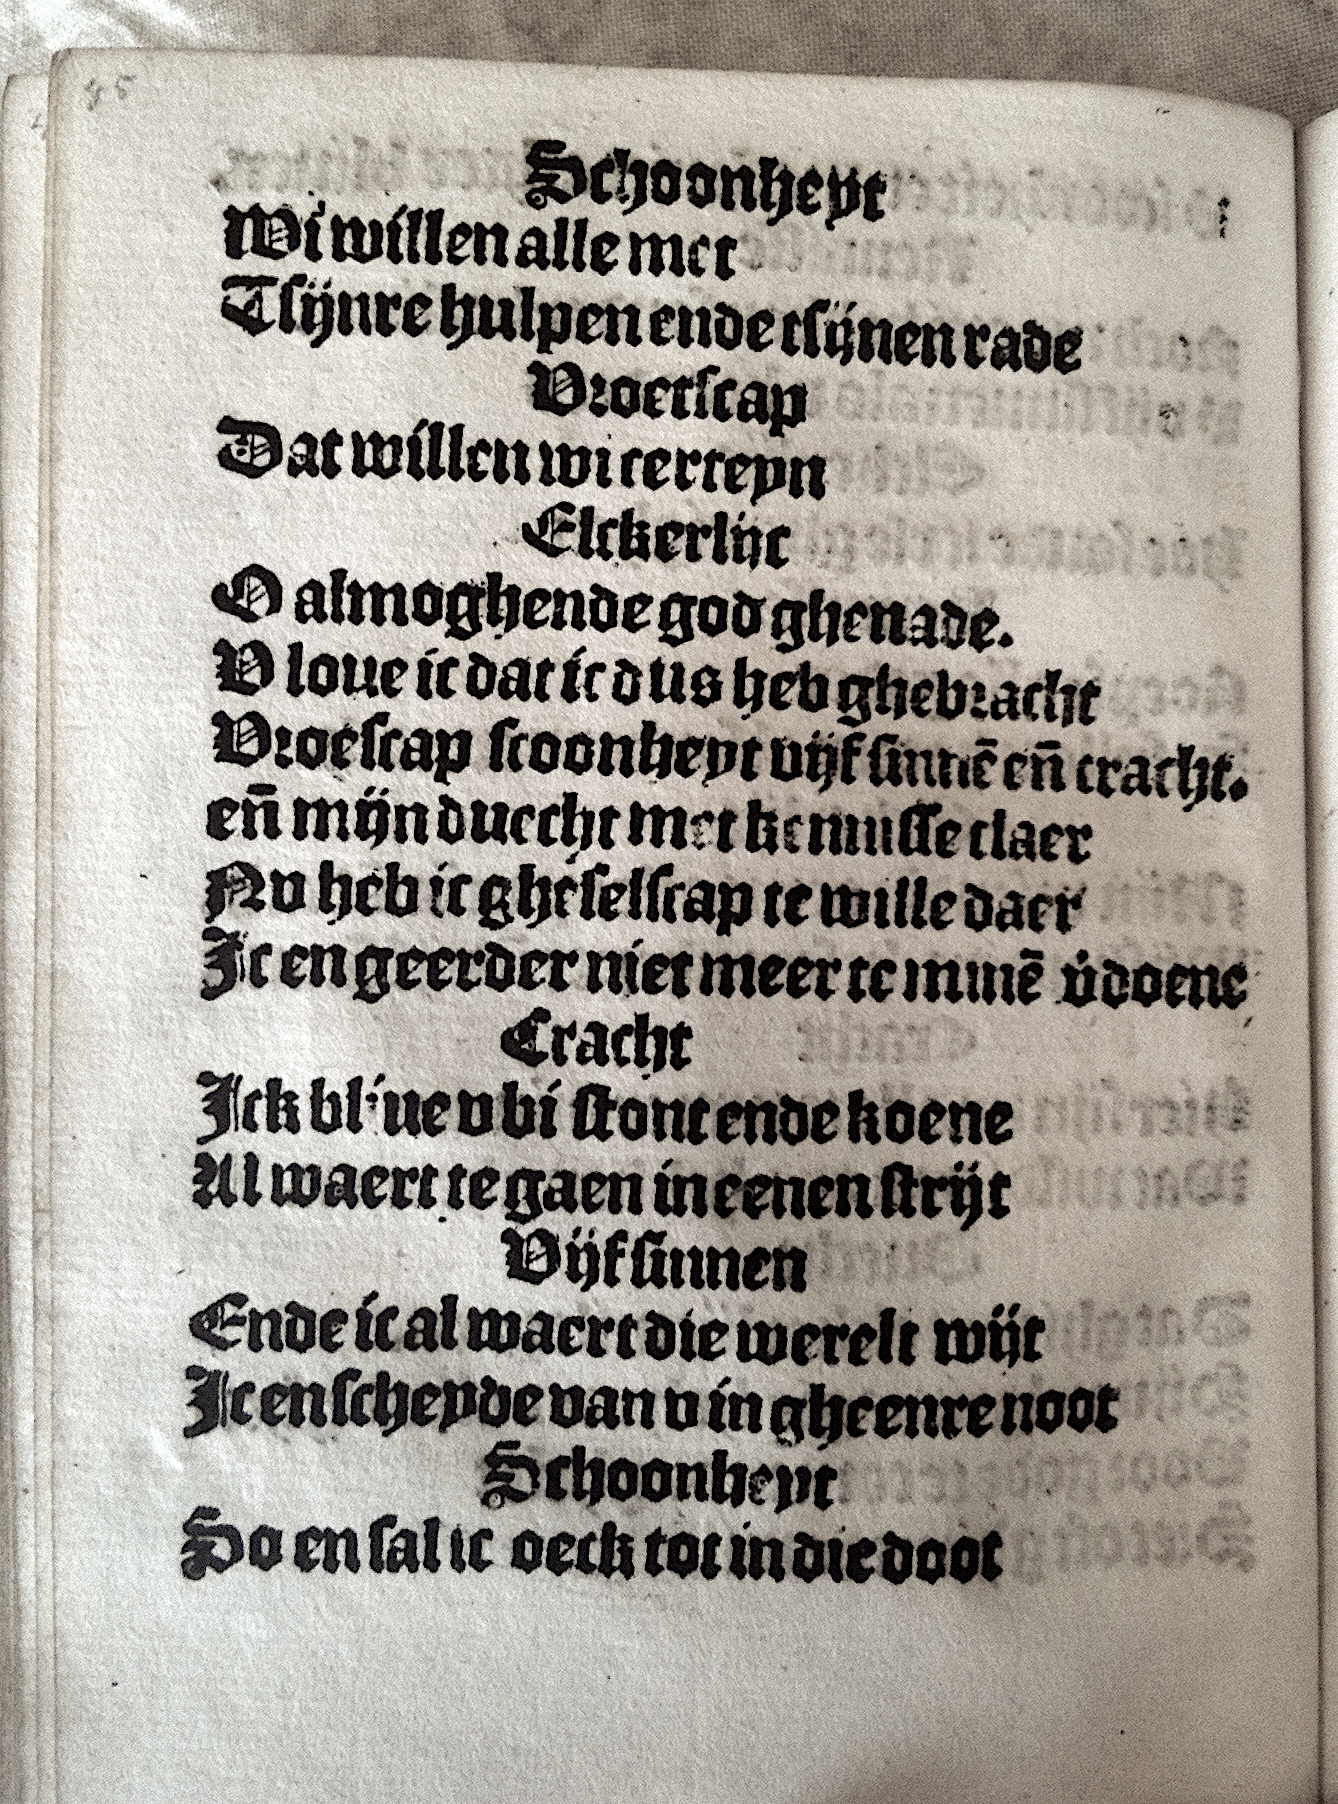 45
Schoonheyt
Wi willen alle met
Tsijnre hulpen ende tsijnen rade
Vroetscap
Dat willen wi certeyn
Elckerlijc
O almoghende god ghenade.
V loue ic dat ic dus heb ghebracht
Vroescap scoonheyt vijf sinnē en̄ cracht.
en̄ mijn duecht met kennisse claer
Nv heb ic gheselscap te wille daer
Ic en geerder niet meer te minē v̇doene
Cracht
Ick bliue v bi stont ende koene
Al waert te gaen in eenen strijt
Vijf sinnen
Ende ic al waert die werelt wijt
Ic en scheyde van v in gheenre noot
Schoonheyt
So en sal ic oeck tot in die doot